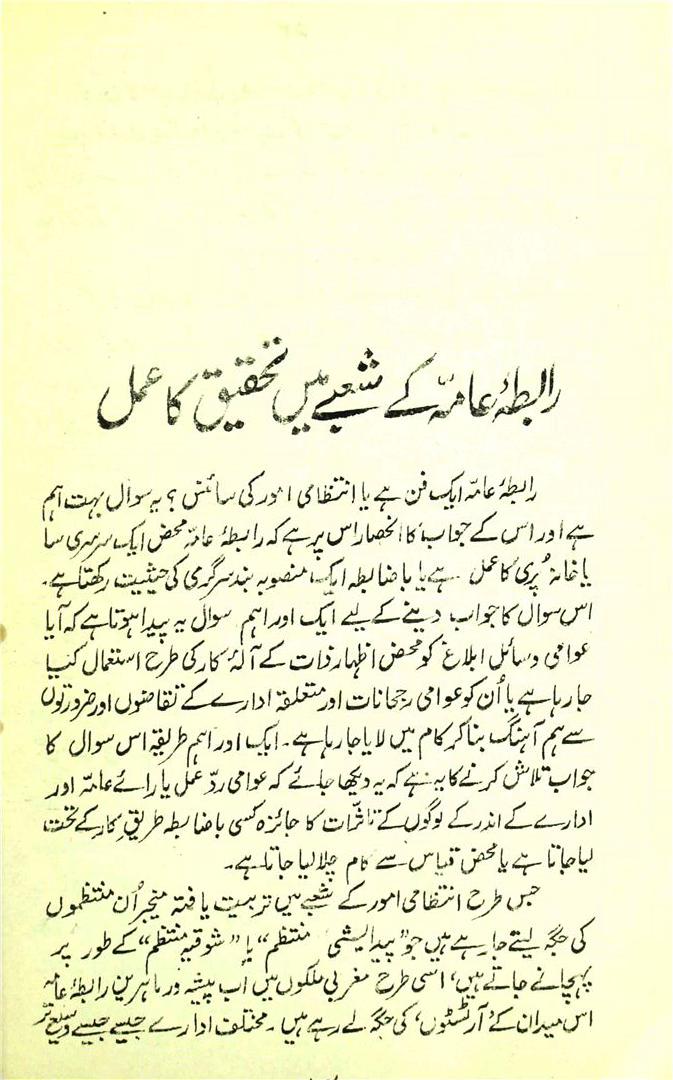 رابطۂ عامہّ کے شعبے میں تحقیق کا عمل
رابطۂ عامہّ ایک فن ہے یا انتظامی امور کی سائنس؟ یہ سوال بہت اہم
ہے اور اس کے جواب کا انحصار اس پر ہے کہ رابطۂ عامہّ محض ایک سرسری سا
یا خانہ پُری کا عمل ہے یا باضابطہ ایک منصوبہ بند سرگرمی کی حیثیت رکھتا ہے۔
اس سوال کا جواب دینے کے لیے ایک اور اہم سوال یہ پیدا ہوتا ہے کہ آیا
عوامی وسائل ابلاغ کو محض اظہار ذات کے آلۂ کار کی طرح استعمال کیا
جا رہا ہے یا اُن کو عوامی رجحانات اور متعلقہ ادارے کے تقاضوں اور ضرورتوں
سے ہم آہنگ بنا کر کام میں لایا جا رہا ہے۔ ایک اور اہم طریقہ اس سوال کا
جواب تلاش کرنے کا یہ ہے کہ یہ دیکھا جائے کہ عوامی ردّ عمل یا رائے عامہ اور
ادارے کے اندر کے لوگوں کے تاثرات کا جائزہ کسی باضابطہ طریقِ کار کے تحت
لیا جاتا ہے یا محض قیاس سے کام چلا لیا جاتا ہے۔
جس طرح انتظامی امور کے شعبے میں تربیت یافتہ منیجر اُن منتظموں
کی جگہ لیتے جا رہے ہیں جو "پیدایشی منتظم" یا "شوقیہ منتظم" کے طور پر
پہچانے جاتے ہیں، اسی طرح مغربی ملکوں میں اب پیشہ ور ماہرین رابطۂ عامہ
اس میدان کے 'آرٹسٹوں' کی جگہ لے رہے ہیں۔ مختلف ادارے جیسے جیسے وسیع تر